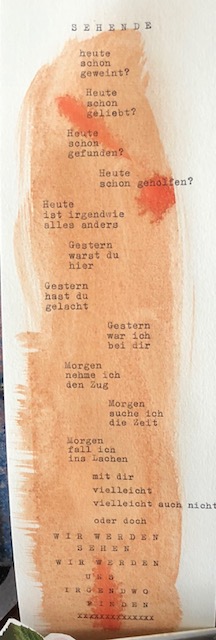 SEHENDE
heute
schon
geweint?
Heute
schon
geliebt?
Heute
schon
gefunden?
Heute
schon geholfen?
Heute
ist irgendwie
alles anders
Gestern
warst du
hier
Gestern
hast du
gelacht
Gestern
war ich
bei dir
Morgen
nehme ich
den Zug
Morgen
suche ich
die Zeit
Morgen
fall ich
ins Lachen
mit dir
vielleicht
vielleicht auch nicht
oder doch
WIR WERDEN
SEHEN
WIR WERDEN
UNS
IRGENDWO
FINDEN